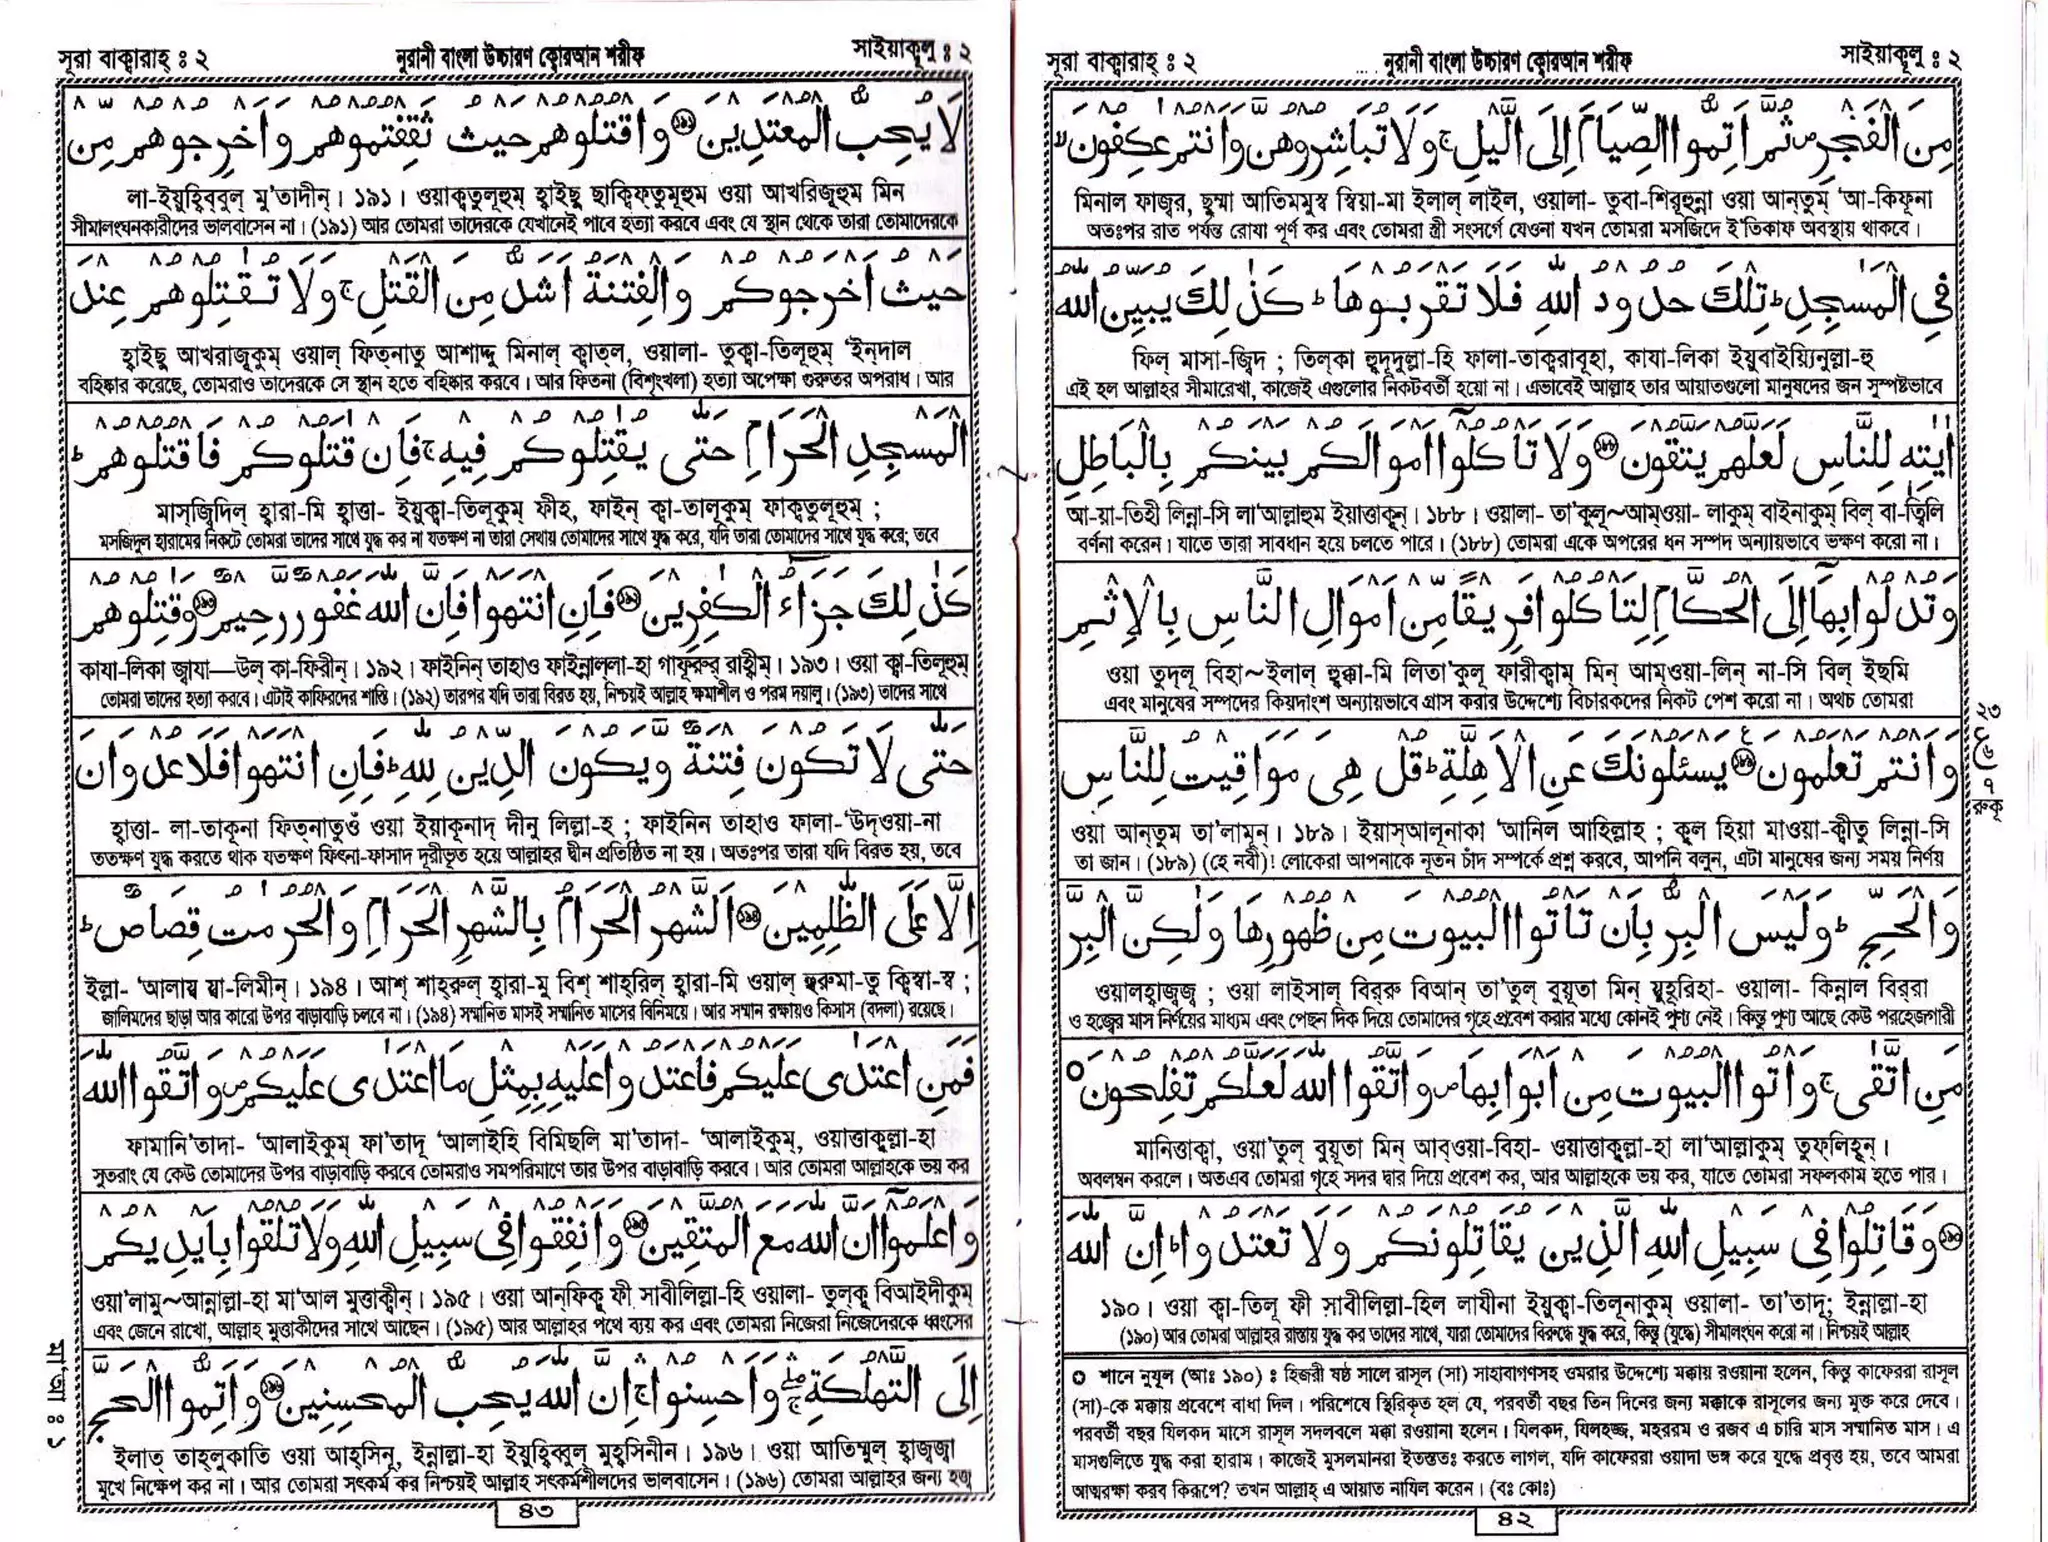 সূরা বাক্বারাহ্ ঃ ২ নূরানী বাংলা উচ্চারণ ক্বোরআন শরীফ সাইয়াকূলু ঃ ২
مِنَ الْفَجْرِ ص ثُمَّ اَتِمُّوا الصِّيَامَ اِلَى الَّيْلِ ج وَلَا تُبَاشِرُوْهُنَّ وَاَنْتُمْ عٰكِفُوْنَ لا
মিনাল ফাজ্বর, ছুম্মা আতিমমুস্ব স্বিয়া-মা ইলাল্ লাইল, ওয়ালা- তুবা-শিরূহুন্না ওয়া আন্‌তুম্ ‘আ-কিফূনা
অতঃপর রাত পর্যন্ত রোযা পূর্ণ কর এবং তোমরা স্ত্রী সংসর্গে যেওনা যখন তোমরা মসজিদে ই‘তিকাফ অবস্থায় থাকবে।
فِى الْمَسٰجِدِ ط تِلْكَ حُدُوْدُ اللّٰهِ فَلَا تَقْرَبُوْهَا ط كَذٰلِكَ يُبَيِّنُ اللّٰهُ
ফিল্ মাসা-জ্বিদ ; তিল্‌কা হুদূদুল্লা-হি ফালা-তাক্বরাবূহা, কাযা-লিকা ইয়ুবাইয়্যিনুল্লা-হু
এই হল আল্লাহর সীমারেখা, কাজেই এগুলোর নিকটবর্তী হয়ো না। এভাবেই আল্লাহ তার আয়াতগুলো মানুষদের জন সুস্পষ্টভাবে
اٰيٰتِهٖ لِلنَّاسِ لَعَلَّهُمْ يَتَّقُوْنَ ১৮৮ وَلَا تَاْكُلُوْٓا اَمْوَالَكُمْ بَيْنَكُمْ بِالْبَاطِلِ
আ-য়া-তিহী লিন্না-সি লা‘আল্লাহুম ইয়াত্তাকূন্। ১৮৮। ওয়ালা- তা’কুলূ~আম্ওয়া- লাকুম্ বাইনাকুম্ বিল্ বা-ত্বিলি
বর্ণনা করেন। যাতে তারা সাবধান হয়ে চলতে পারে। (১৮৮) তোমরা একে অপরের ধন সম্পদ অন্যায়ভাবে ভক্ষণ করো না।
وَتُدْلُوْا بِهَآ اِلَى الْحُكَّامِ لِتَاْكُلُوْا فَرِيْقًا مِّنْ اَمْوَالِ النَّاسِ بِالْاِثْمِ
ওয়া তুদ্‌লূ বিহা~ইলাল্ হুক্কা-মি লিতা’কুল্ ফারীক্বাম্ মিন্ আম্ওয়া-লিন্ না-সি বিল্ ইছমি
এবং মানুষের সম্পদের কিয়দাংশ অন্যায়ভাবে গ্রাস করার উদ্দেশ্যে বিচারকদের নিকট পেশ করো না। অথচ তোমরা
وَاَنْتُمْ تَعْلَمُوْنَ ১৮৯ ع يَسْئَلُوْنَكَ عَنِ الْاَهِلَّةِ ط قُلْ هِىَ مَوَاقِيْتُ لِلنَّاسِ
২৩
ع
৬
৭
রুকূ
ওয়া আন্‌তুম তা’লামূন্। ১৮৯। ইয়াস্আলূনাকা ‘আনিল আহিল্লাহ ; কুল হিয়া মাওয়া-ক্বীতু লিন্না-সি
তা জান। (১৮৯) (হে নবী)! লোকেরা আপনাকে নূতন চাঁদ সম্পর্কে প্রশ্ন করবে, আপনি বলুন, এটা মানুষের জন্য সময় নির্ণয়
وَالْحَجِّ ط وَلَيْسَ الْبِرُّ بِاَنْ تَاْتُوا الْبُيُوْتَ مِنْ ظُهُوْرِهَا وَلٰكِنَّ الْبِرَّ
ওয়ালহ্বাজ্বজ্ব ; ওয়া লাইসাল্ বির্‌রু বিআন্ তা’তুল্ বুয়ূতা মিন্ যুহূরিহা- ওয়ালা- কিন্নাল বির্‌রা
ও হজ্বের মাস নির্ণয়ের মাধ্যম এবং পেছন দিক দিয়ে তোমাদের গৃহে প্রবেশ করার মধ্যে কোনই পুণ্য নেই। কিন্তু পুণ্য আছে কেউ পরহেজগারী
مَنِ اتَّقٰى ج وَاْتُوا الْبُيُوْتَ مِنْ اَبْوَابِهَا ص وَاتَّقُوا اللّٰهَ لَعَلَّكُمْ تُفْلِحُوْنَ
মানিত্তাক্বা, ওয়া’তুল্ বুয়ূতা মিন্ আব্ওয়া-বিহা- ওয়াত্তাকুল্লা-হা লা‘আল্লাকুম্ তুফ্‌লিহূন্।
অবলম্বন করলে। অতএব তোমরা গৃহে সদর দ্বার দিয়ে প্রবেশ কর, আর আল্লাহকে ভয় কর, যাতে তোমরা সফলকাম হতে পার।
১৯০ وَقَاتِلُوْا فِىْ سَبِيْلِ اللّٰهِ الَّذِيْنَ يُقَاتِلُوْنَكُمْ وَلَا تَعْتَدُوْا ط اِنَّ اللّٰهَ
১৯০। ওয়া ক্বা-তিলূ ফী সাবীলিল্লা-হিল লাযীনা ইয়ুক্বা-তিলূনাকুম্ ওয়ালা- তা’তাদূ; ইন্নাল্লা-হা
(১৯০) আর তোমরা আল্লাহর রাস্তায় যুদ্ধ কর তাদের সাথে, যারা তোমাদের বিরুদ্ধে যুদ্ধ করে, কিন্তু (যুদ্ধে) সীমালংঘন করো না। নিশ্চয়ই আল্লাহ
✪ শানে নুযূল (আঃ ১৯০) ঃ হিজরী ষষ্ঠ সালে রাসূল (সা) সাহাবাগণসহ ওমরার উদ্দেশ্যে মক্কায় রওয়ানা হলেন, কিন্তু কাফেররা রাসূল
(সা)-কে মক্কায় প্রবেশে বাধা দিল। পরিশেষে স্থিরিকৃত হল যে, পরবর্তী বছর তিন দিনের জন্য মক্কাকে রাসূলের জন্য মুক্ত করে দেবে।
পরবর্তী বছর যিলকদ মাসে রাসূল সদলবলে মক্কা রওয়ানা হলেন। যিলকদ, যিলহজ্জ, মহররম ও রজব এ চারি মাস সম্মানিত মাস। এ
মাসগুলিতে যুদ্ধ করা হারাম। কাজেই মুসলমানরা ইতস্ততঃ করতে লাগল, যদি কাফেররা ওয়াদা ভঙ্গ করে যুদ্ধে প্রবৃত্ত হয়, তবে আমরা
আত্মরক্ষা করব কিরূপে? তখন আল্লাহ্ এ আয়াত নাযিল করেন। (বঃ কোঃ)
৪২
সূরা বাক্বারাহ্ ঃ ২ নূরানী বাংলা উচ্চারণ ক্বোরআন শরীফ সাইয়াকূলু ঃ ২
لَا يُحِبُّ الْمُعْتَدِيْنَ ১৯১ وَاقْتُلُوْهُمْ حَيْثُ ثَقِفْتُمُوْهُمْ وَاَخْرِجُوْهُمْ مِّنْ
লা-ইয়ুহিব্বুল্ মু’তাদীন্। ১৯১। ওয়াক্বতুলূহুম্ হাইছু ছাক্বিফ্‌তুমূহুম ওয়া আখরিজূহুম মিন
সীমালংঘনকারীদের ভালবাসেন না। (১৯১) আর তোমরা তাদেরকে যেখানেই পাবে হত্যা করবে এবং যে স্থান থেকে তারা তোমাদেরকে
حَيْثُ اَخْرَجُوْكُمْ وَالْفِتْنَةُ اَشَدُّ مِنَ الْقَتْلِ ج وَلَا تُقٰتِلُوْهُمْ عِنْدَ
হাইছু আখরাজূকুম্ ওয়াল্ ফিত্‌নাতু আশাদ্দু মিনাল্ ক্বাত্‌ল, ওয়ালা- তুক্বা-তিলূহুম্ ‘ইন্‌দাল
বহিষ্কার করেছে, তোমরাও তাদেরকে সে স্থান হতে বহিষ্কার করবে। আর ফিতনা (বিশৃংখলা) হত্যা অপেক্ষা গুরুতর অপরাধ। আর
الْمَسْجِدِ الْحَرَامِ حَتّٰى يُقٰتِلُوْكُمْ فِيْهِ ج فَاِنْ قٰتَلُوْكُمْ فَاقْتُلُوْهُمْ ط
মাস্‌জ্বিদিল্ হারা-মি হাত্তা- ইয়ুক্বা-তিলূকুম্ ফীহ, ফাইন্ ক্বা-তালূকুম্ ফাক্বতুলূহুম্ ;
মসজিদুল হারামের নিকটে তোমরা তাদের সাথে যুদ্ধ কর না যতক্ষণ না তারা সেথায় তোমাদের সাথে যুদ্ধ করে, যদি তারা তোমাদের সাথে যুদ্ধ করে; তবে
كَذٰلِكَ جَزَآءُ الْكٰفِرِيْنَ ১৯২ فَاِنِ انْتَهَوْا فَاِنَّ اللّٰهَ غَفُوْرٌ رَّحِيْمٌ ১৯৩ وَقٰتِلُوْهُمْ
কাযা-লিকা জ্বাযা—উল্ কা-ফিরীন্। ১৯২। ফাইনিন্ তাহাও ফাইন্নাল্লা-হা গাফূরুর্ রাহীম্। ১৯৩। ওয়া ক্বা-তিলূহুম্
তোমরা তাদের হত্যা করবে। এটাই কাফিরদের শাস্তি। (১৯২) তারপর যদি তারা বিরত হয়, নিশ্চয়ই আল্লাহ ক্ষমাশীল ও পরম দয়ালু। (১৯৩) তাদের সাথে
حَتّٰى لَا تَكُوْنَ فِتْنَةٌ وَّيَكُوْنَ الدِّيْنُ لِلّٰهِ ط فَاِنِ انْتَهَوْا فَلَا عُدْوَانَ
হাত্তা- লা-তাকূনা ফিত্‌নাতুওঁ ওয়া ইয়াকূনাদ্ দীনু লিল্লা-হ ; ফাইনিন তাহাও ফালা-‘উদ্ওয়া-না
ততক্ষণ যুদ্ধ করতে থাক যতক্ষণ ফিৎনা-ফাসাদ দূরীভূত হয়ে আল্লাহর দ্বীন প্রতিষ্ঠিত না হয়। অতঃপর তারা যদি বিরত হয়, তবে
اِلَّا عَلَى الظّٰلِمِيْنَ ১৯৪ اَلشَّهْرُ الْحَرَامُ بِالشَّهْرِ الْحَرَامِ وَالْحُرُمٰتُ قِصَاصٌ ط
ইল্লা- ‘আলায্ যা-লিমীন্। ১৯৪। আশ্ শাহ্‌রুল্ হারা-মু বিশ্ শাহ্‌রিল্ হারা-মি ওয়াল্ হুরুমা-তু ক্বিস্বা-স্ব ;
জালিমদের ছাড়া আর কারো উপর বাড়াবাড়ি চলবে না। (১৯৪) সম্মানিত মাসই সম্মানিত মাসের বিনিময়ে। আর সম্মান রক্ষায়ও কিসাস (বদলা) রয়েছে।
فَمَنِ اعْتَدٰى عَلَيْكُمْ فَاعْتَدُوْا عَلَيْهِ بِمِثْلِ مَا اعْتَدٰى عَلَيْكُمْ ص وَاتَّقُوا اللّٰهَ
ফামানি’তাদা- ‘আলাইকুম্ ফা’তাদূ ‘আলাইহি বিমিছলি মা’তাদা- ‘আলাইকুম্, ওয়াত্তাকুল্লা-হা
সুতরাং যে কেউ তোমাদের উপর বাড়াবাড়ি করবে তোমরাও সমপরিমাণে তার উপর বাড়াবাড়ি করবে। আর তোমরা আল্লাহকে ভয় কর
وَاعْلَمُوْٓا اَنَّ اللّٰهَ مَعَ الْمُتَّقِيْنَ ১৯৫ وَاَنْفِقُوْا فِىْ سَبِيْلِ اللّٰهِ وَلَا تُلْقُوْا بِاَيْدِيْكُمْ
ওয়া’লামু~আন্নাল্লা-হা মা‘আল মুত্তাক্বীন্। ১৯৫। ওয়া আন্‌ফিকূ ফী সাবীলিল্লা-হি ওয়ালা- তুল্‌কূ বিআইদীকুম্
এবং জেনে রাখো, আল্লাহ মুত্তাকীদের সাথে আছেন। (১৯৫) আর আল্লাহর পথে ব্যয় কর এবং তোমরা নিজেরা নিজেদেরকে ধ্বংসের
اِلَى التَّهْلُكَةِ ج وَاَحْسِنُوْا ج اِنَّ اللّٰهَ يُحِبُّ الْمُحْسِنِيْنَ ১৯৬ وَاَتِمُّوا الْحَجَّ
মা‘আ ঃ ১
ইলাত্ তাহ্‌লুকাতি ওয়া আহ্‌সিনূ, ইন্নাল্লা-হা ইয়ুহিব্বুল্ মুহ্‌সিনীন। ১৯৬। ওয়া আতিম্মুল্ হাজ্জ্বা
মুখে নিক্ষেপ কর না। আর তোমরা সৎকর্ম কর নিশ্চয়ই আল্লাহ সৎকর্মশীলদের ভালবাসেন। (১৯৬) তোমরা আল্লাহর জন্য হজ্ব
৪৩